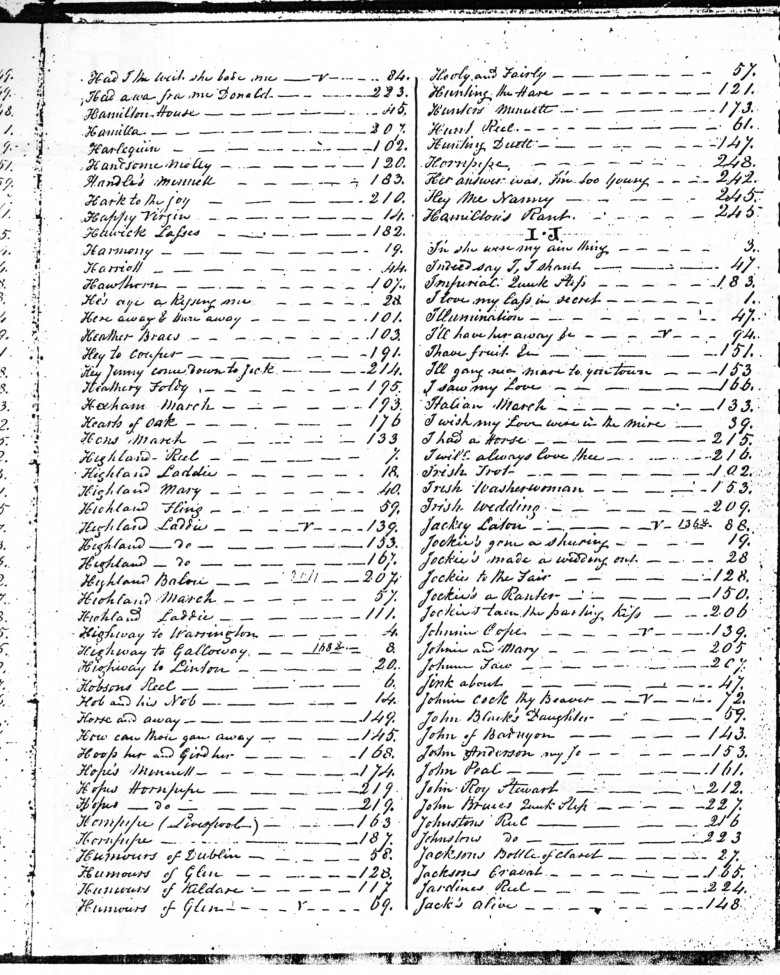 Had I the weit she bade me — v — 84.
Had awa fra me Donald — 223.
Hamilton House — 45.
Hamilla — 207.
Harlequin — 102.
Handsome Molly — 120.
Handle's Menuett — 183.
Hark to the Joy — 210.
Happy Virgin — 14.
Hawick Lasses — 182.
Harmony — 19.
Harriott — 44.
Hawthorn — 107.
He's aye a kissing me — 28
Here away & there away — 101.
Heather Braes — 103.
Hey to Couper — 191.
Hey Jenny come down to Jock — 214.
Heathery Foldy — 195.
Hexham March — 193.
Hearts of Oak — 176
Hens March — 133
Highland Reel — 7.
Highland Laddie — 18.
Highland Mary — 40.
Highland Fling — 59.
Highland Laddie — v — 139.
Highland — do — 153.
Highland — do — 167.
Highland Balou — 207.
Highland March — 57.
Highland Laddie — 111.
Highway to Warrington — 4.
Highway to Galloway — 168 & — 8.
Highway to Linton — 20.
Hobsons Reel — 6.
Hob and his Nob — 14.
Horse and away — 149.
How can thou gan away — 145.
Hoop her and Gird her — 168.
Hope's Menuett — 174.
Hopes Hornpipe — 219
Hopes — do — 219.
Hornpipe (Liverpool) — 163
Hornpipe — 187.
Humours of Dublin — 58.
Humours of Glen — 128.
Humours of Kildare — 117
Humours of Glen — v — 69.
Hooly and Fairly — 57.
Hunting the Hare — 121.
Hunters Menuett — 173.
Hunt Reel — 61.
Hunting Duett — 147.
Hornpipe — 248.
Her answer was, I'm too Young — 242.
Hey Me Nanny — 245.
Hamilton's Rant — 245
I. J.
In she were my ain thing — 3.
Indeed say I, I shanît — 47
Imperial Quick Step — 183.
I love my Lass in secret — 1.
Illumination — 47.
I'll have her away &c — v — 94.
I have fruit &c — 151.
I'll gang nea mare to yon town — 153
I saw my Love — 166.
Italian March — 133.
I wish my Love were in the mire — 39.
I had a Horse — 215.
I will always love thee — 216.
Irish Trot — 102.
Irish Washerwoman — 153.
Irish Wedding — 209.
Jackey Laton — v — 136 & 88.
Jockie's gone a shuring — 19.
Jockie's made a wedding out — 28
Jockie to the Fair — 128.
Jockie's a Ranter — 150.
Jockie's taen the parting Kiss — 206
Johnnie Cope — v — 139.
Johnie and Mary — 205
Johnnie Faw — 207.
Jink about — 47.
Johnie Cock thy Beaver — v — 72.
John Black's Daughter — 59.
John of Badnyon — 143.
John Anderson my Jo — 153.
John Peal — 161.
John Roy Stewart — 212.
John Bruces Quick Step — 227.
Johnstons Reel — 216
Johnstons do — 223
Jacksons Bottle of Claret — 27.
Jacksons Cravat — 165.
Jardines Reel — 224.
Jack's Alive — 148